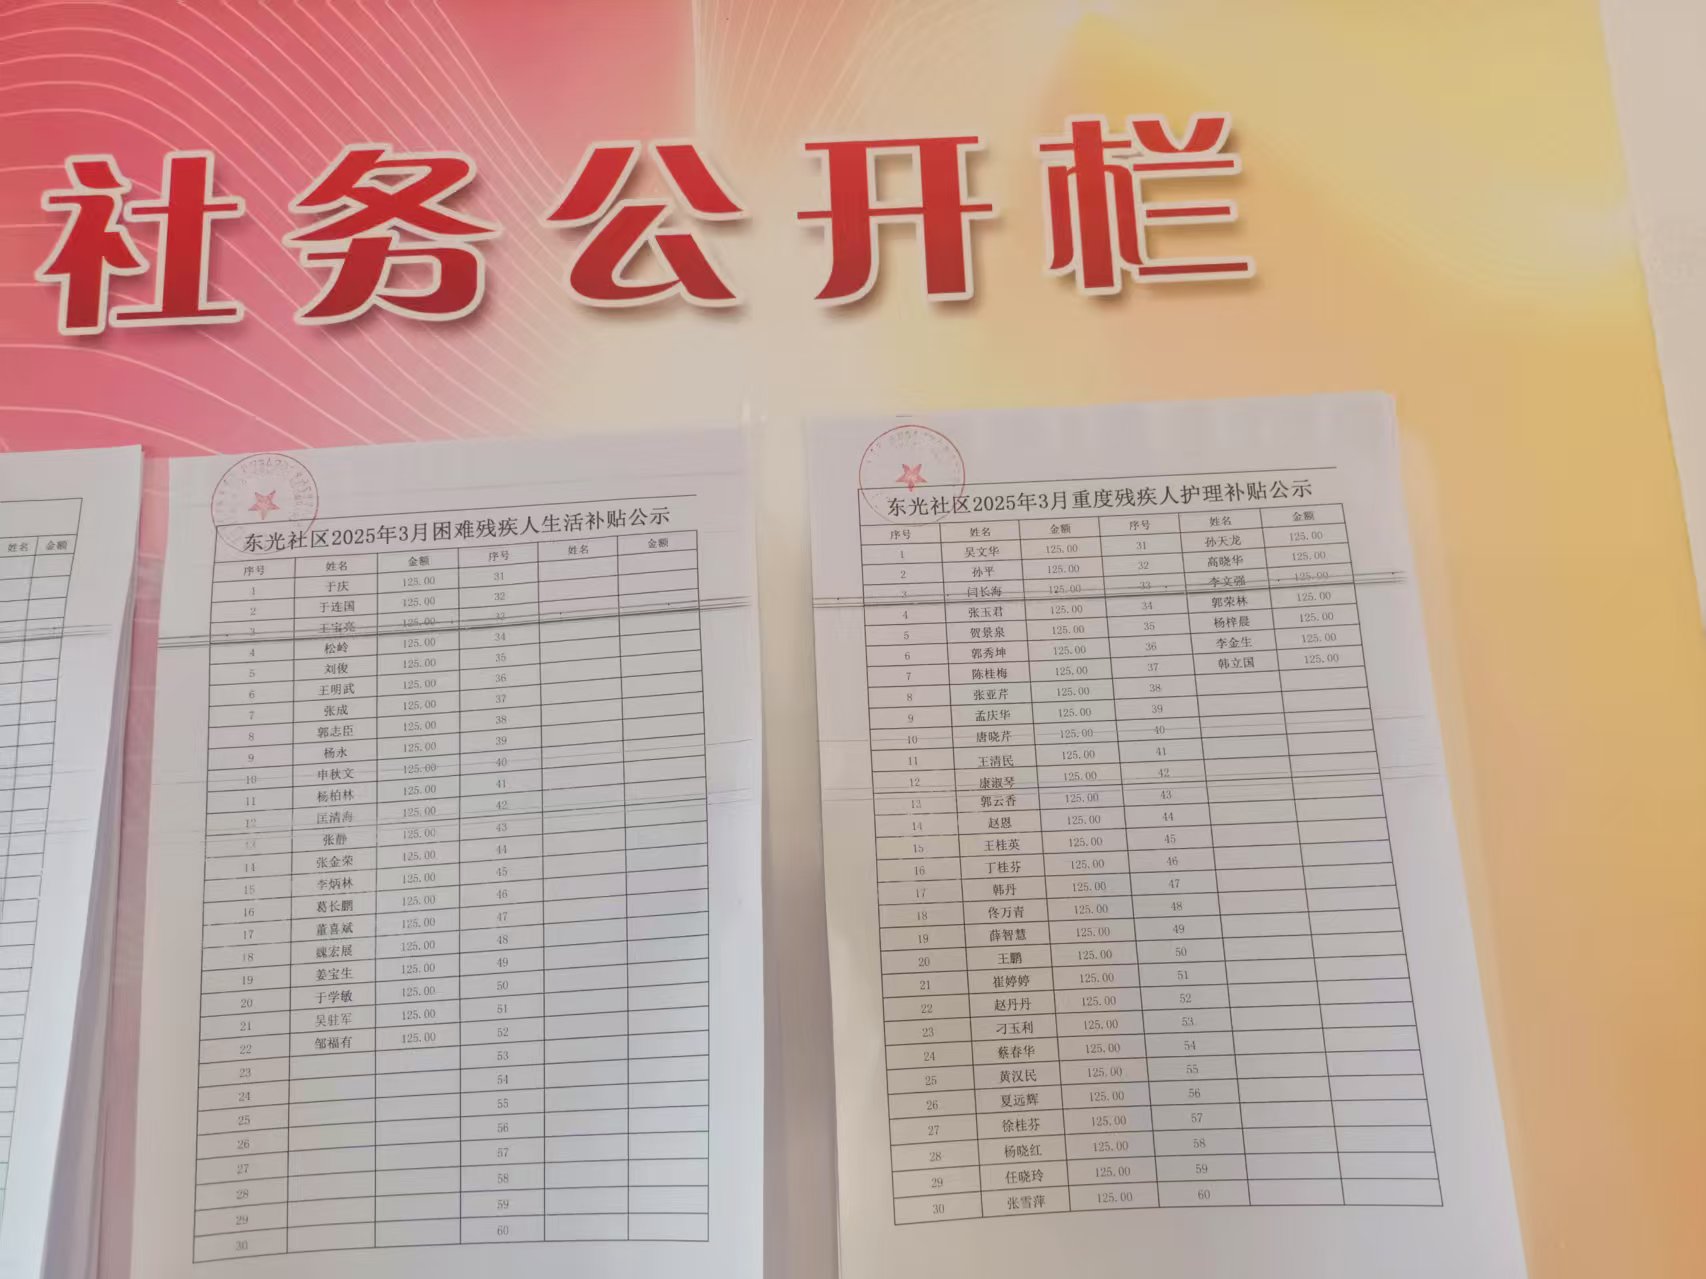 社务公开栏
姓名 金额
东光社区2025年3月困难残疾人生活补贴公示
序号 姓名 金额 序号 姓名 金额
1 于庆 125.00 31
2 于连国 125.00 32
3 王宝亮 125.00 33
4 松岭 125.00 34
5 刘俊 125.00 35
6 王明武 125.00 36
7 张成 125.00 37
8 郭志臣 125.00 38
9 杨永 125.00 39
10 申秋文 125.00 40
11 杨柏林 125.00 41
12 匡清海 125.00 42
13 张静 125.00 43
14 张金荣 125.00 44
15 李炳林 125.00 45
16 葛长鹏 125.00 46
17 董喜斌 125.00 47
18 魏宏展 125.00 48
19 姜宝生 125.00 49
20 于学敏 125.00 50
21 吴驻军 125.00 51
22 邹福有 125.00 52
23 53
24 54
25 55
26 56
27 57
28 58
29 59
30 60
东光社区2025年3月重度残疾人护理补贴公示
序号 姓名 金额 序号 姓名 金额
1 吴文华 125.00 31 孙天龙 125.00
2 孙平 125.00 32 高晓华 125.00
3 闫长海 125.00 33 李文强 125.00
4 张玉君 125.00 34 郭荣林 125.00
5 贺景泉 125.00 35 杨梓晨 125.00
6 郭秀坤 125.00 36 李金生 125.00
7 陈桂梅 125.00 37 韩立国 125.00
8 张亚芹 125.00 38
9 孟庆华 125.00 39
10 唐晓芹 125.00 40
11 王清民 125.00 41
12 康淑琴 125.00 42
13 郭云香 125.00 43
14 赵恩 125.00 44
15 王桂英 125.00 45
16 丁桂芬 125.00 46
17 韩丹 125.00 47
18 佟万青 125.00 48
19 薛智慧 125.00 49
20 王鹏 125.00 50
21 崔婷婷 125.00 51
22 赵丹丹 125.00 52
23 刁玉利 125.00 53
24 蔡春华 125.00 54
25 黄汉民 125.00 55
26 夏远辉 125.00 56
27 徐桂芬 125.00 57
28 杨晓红 125.00 58
29 任晓玲 125.00 59
30 张雪萍 125.00 60